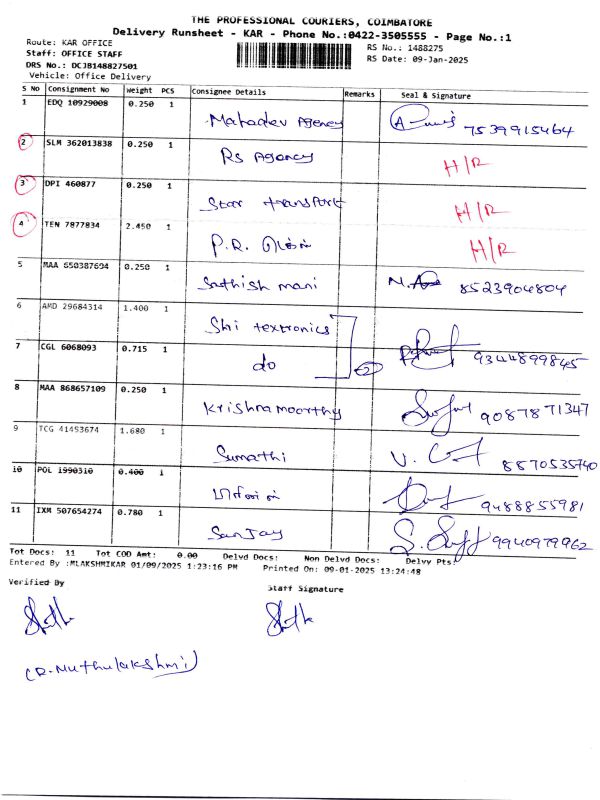 THE PROFESSIONAL COURIERS, COIMBATORE
Delivery Runsheet - KAR - Phone No.:0422-3505555 - Page No.:1
Route: KAR OFFICE
RS No.: 1488275
Staff: OFFICE STAFF
RS Date: 09-Jan-2025
DRS No.: DCJB148827501
Vehicle: Office Delivery
S No Consignment No Weight PCS Consignee Details Remarks Seal & Signature
1 EDQ 10929008 0.250 1 Mahadev Agency 7539915464
2 SLM 362013838 0.250 1 RS Agency H/R
3 DPI 460877 0.250 1 Star transport H/R
4 TEN 7877834 2.450 1 P.R. H/R
5 MAA 650387694 0.250 1 Sathish mani 8523904804
6 AMD 29684314 1.400 1 Shri textronics
7 CGL 6068093 0.715 1 do 2 9344899845
8 MAA 868657109 0.250 1 Krishnamoorthy 9087871347
9 TCG 41453674 1.680 1 Sumathi 8870535740
10 POL 1990310 0.400 1 9488855981
11 IXM 507654274 0.780 1 Sanjay 9940979962
Tot Docs: 11 Tot COD Amt: 0.00 Delvd Docs: Non Delvd Docs: Delvy Pts:
Entered By :MLAKSHMIKAR 01/09/2025 1:23:16 PM Printed On: 09-01-2025 13:24:48
Verified By Staff Signature
(R.Muthulakshmi)